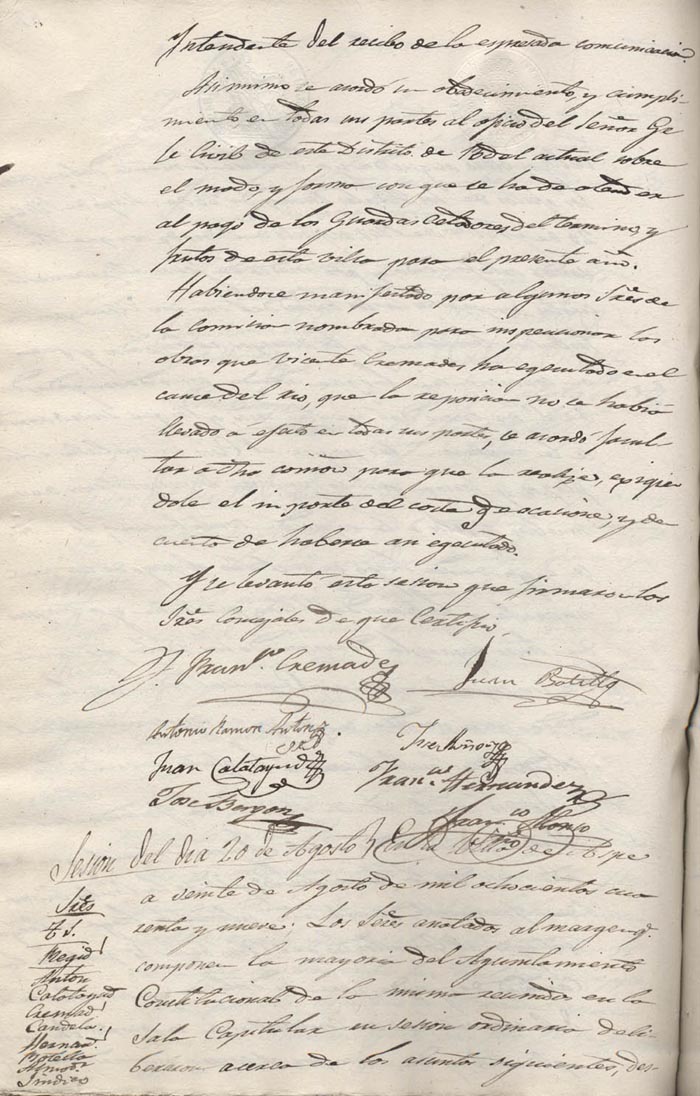 Intendente del recibo de la espresada comunicacion.
Asimismo se acordó su obedecimiento, y cumpli-
miento, en todas sus partes al oficio del Señor Ge
fe Civil de este Distrito de 18 del actual sobre
el modo, y forma con que se ha de atender
al pago de los Guardas Celadores del termino, y
frutos de esta villa para el presente año.
Habiendose manifestado por algunos Sres de
la comision nombrada para inspeccionar las
obras que Vicente Cremades ha egecutado en el
cauce del rio, que la reposicion no se habia
llevado á efecto en todas sus partes, se acordó facul-
tar a dha comion para que la realize, exigien
dole el importe del coste q ocasione, y de
de haberse asi egecutado.
Y se levantó esta sesion que firmaron los
Sres Concejales de que Certifico.
Franco Cremades
Juan Botella
Antonio Ramon Anton
Juan Calatayud
Franco Hernandez
Jose
Franco Alonso
Sesion del dia 20 de Agosto
En la Villa de Aspe
a veinte de Agosto de mil ochocientos cua
renta y nueve: Los Sres anotados al margen q.
componen la mayoria del Ayuntamiento
Constitucional de la misma reunidos en la
Sala Capitular en sesion ordinaria deli-
beraron acerca de los asuntos siguientes, des-
Sres
Regid
Anton
Calatayud
Cremad
Candela
Hernan
Botella
Almod
Sindico